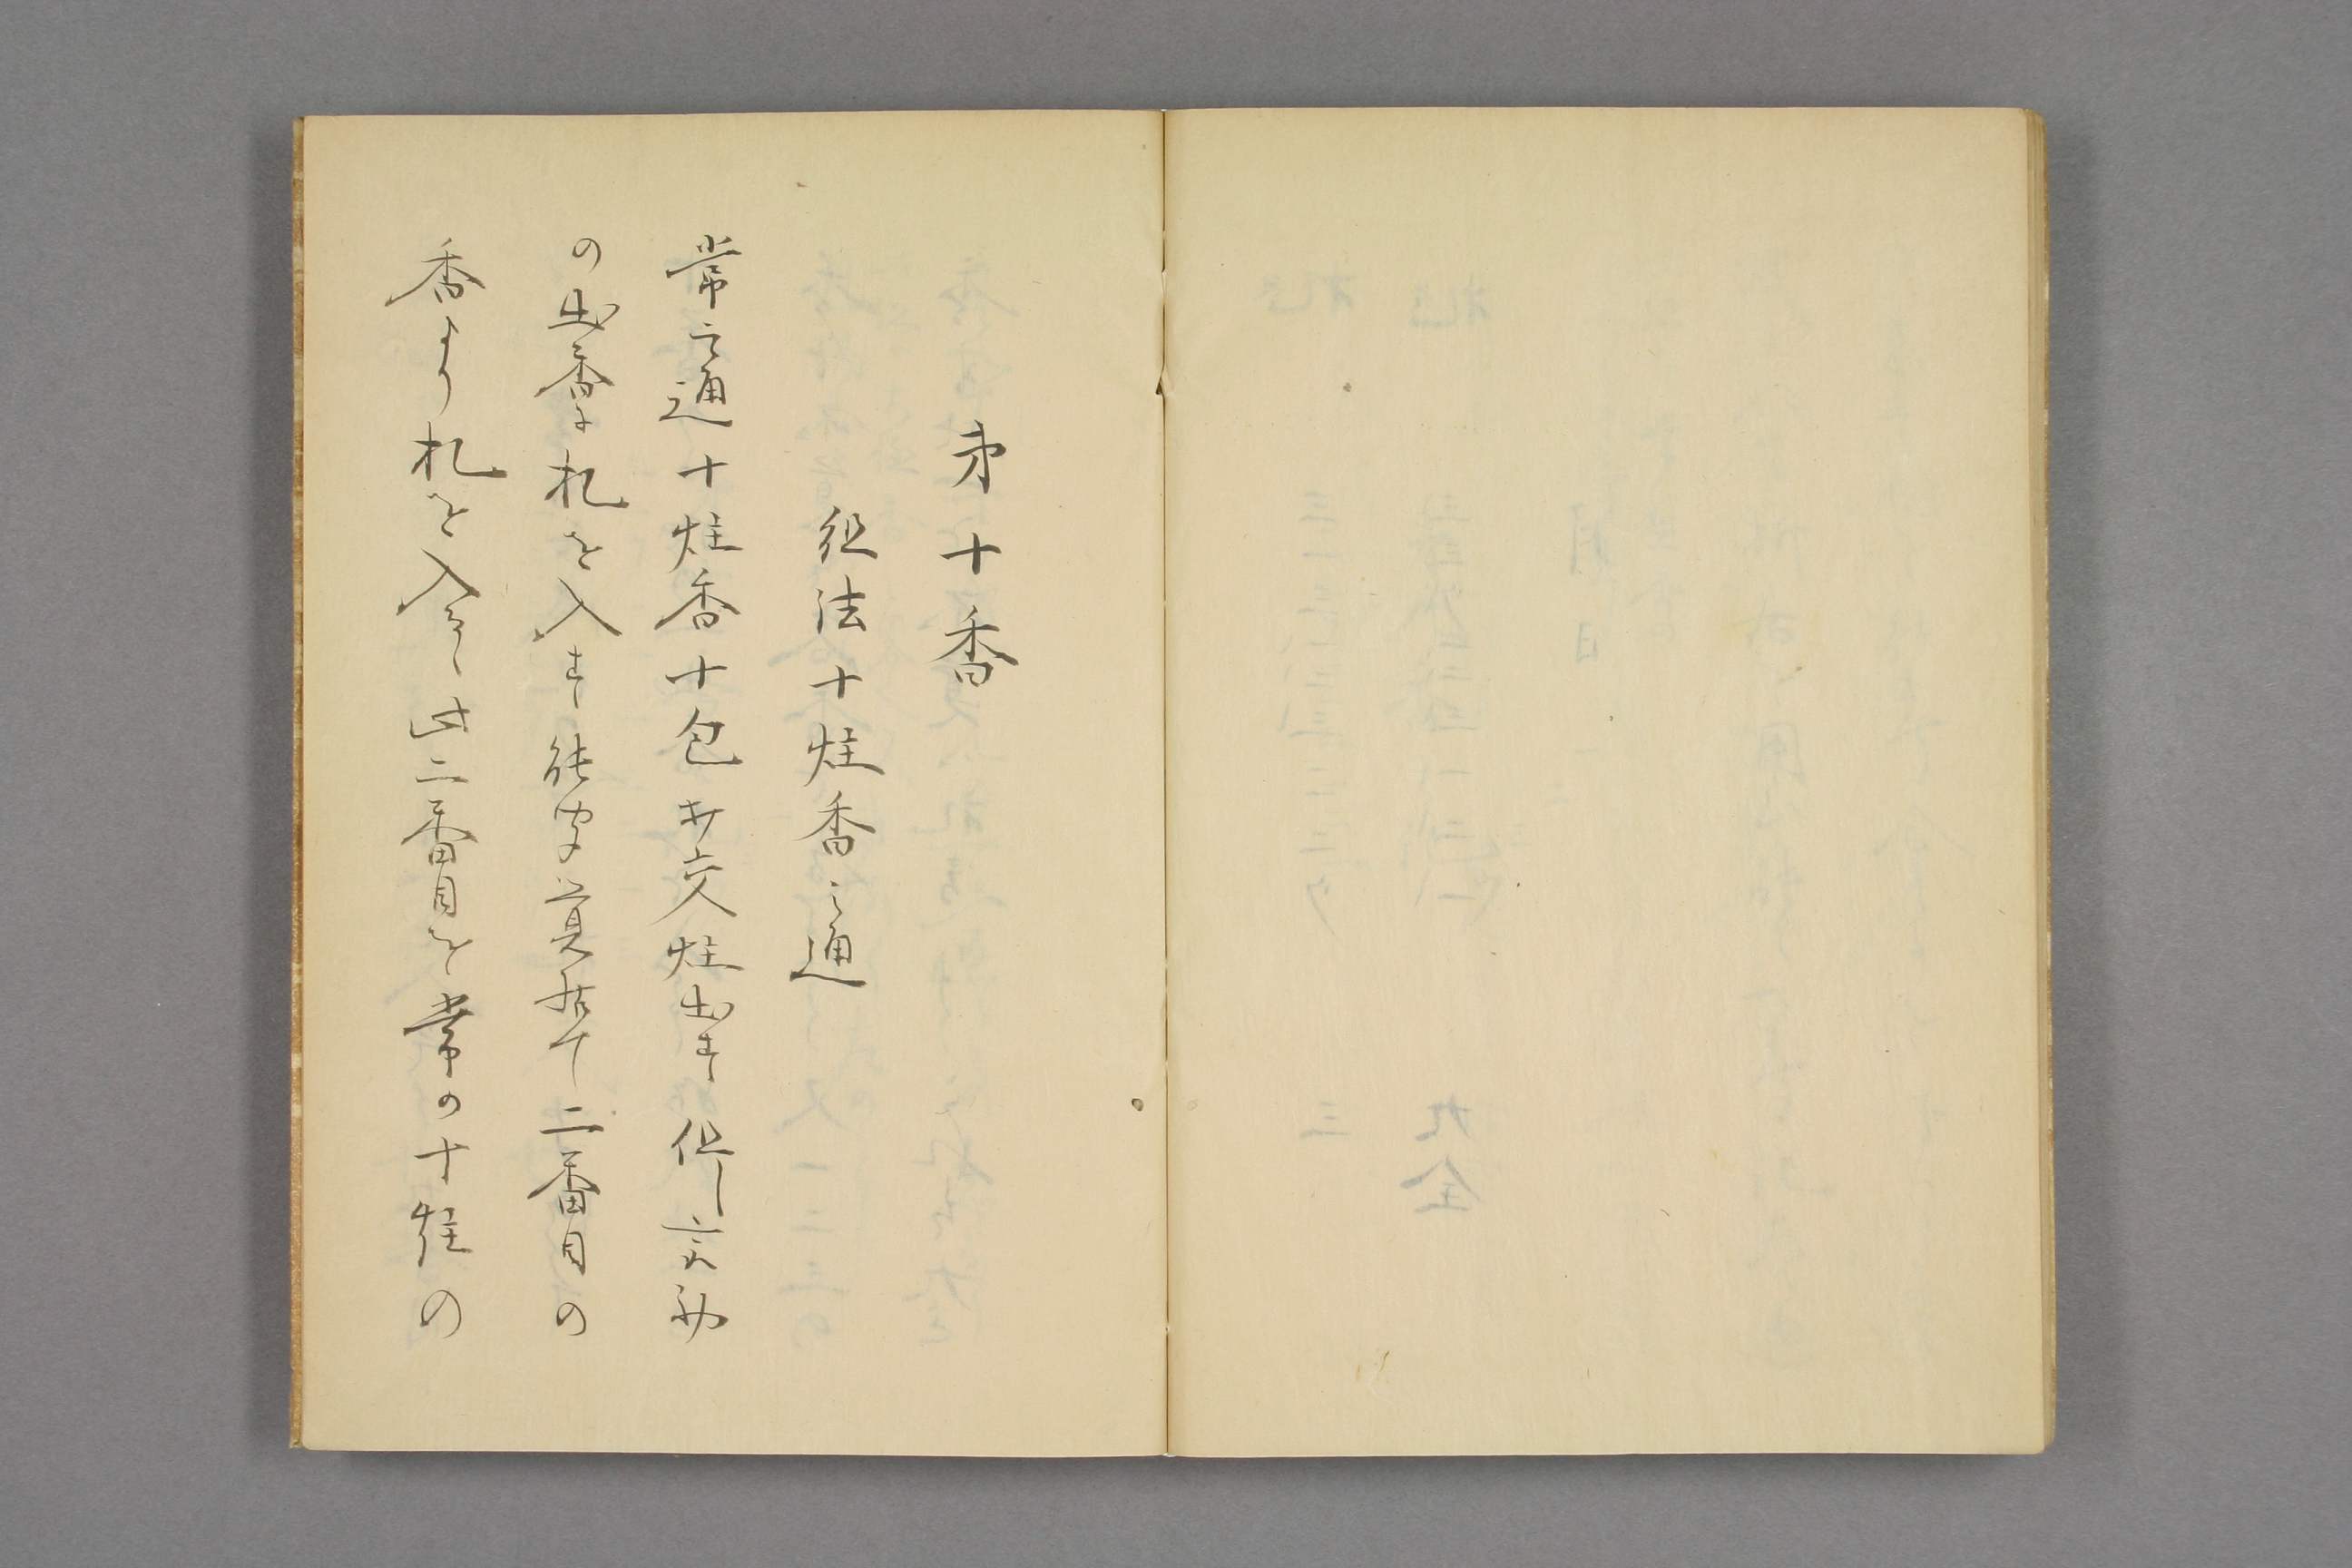 㐧十香
組法十炷香之通
常之通十炷香十包打交炷出す但し最初
の出香に札を入す能聞覚居て二番目の
香より札を入る、此二番目を常の十炷の